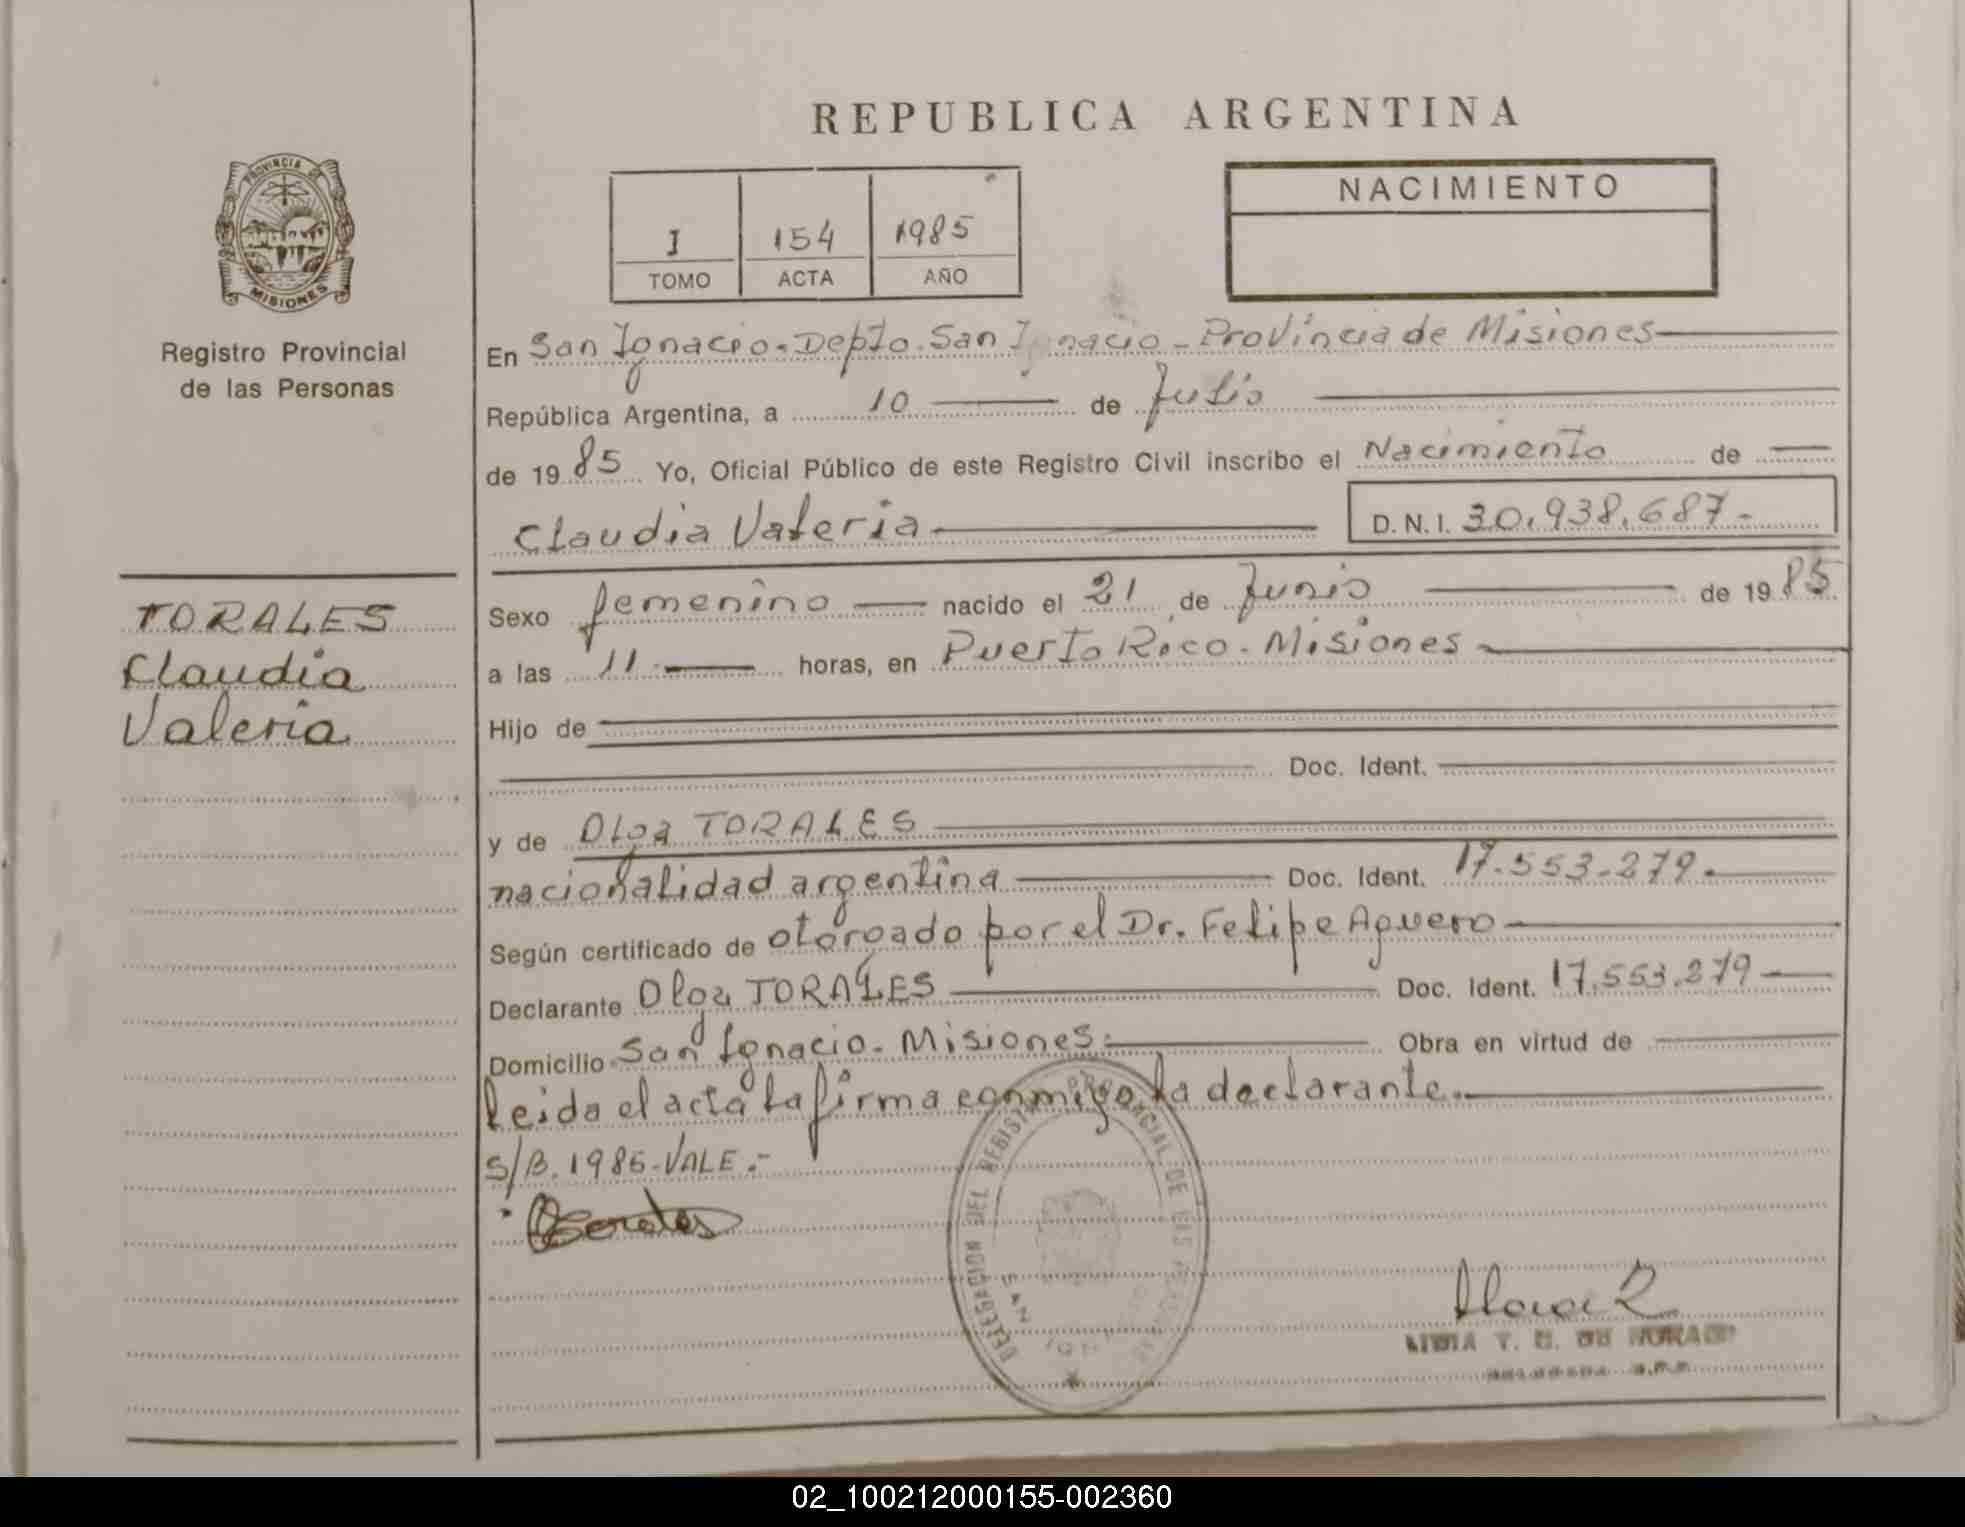 REPUBLICA ARGENTINA
PROVINCIA DE
MISIONES
Registro Provincial
de las Personas
I 154 1985
TOMO ACTA AÑO
NACIMIENTO
En San Ignacio - Depto. San Ignacio - Provincia de Misiones
República Argentina, a 10 de Julio
de 1985 Yo, Oficial Público de este Registro Civil inscribo el Nacimiento de
Claudia Valeria D.N.I. 30.938.687.-
TORALES
Claudia
Valeria
Sexo femenino nacido el 21 de Junio de 1985
a las 11 horas, en Puerto Rico - Misiones
Hijo de
Doc. Ident.
y de Olga TORALES
nacionalidad argentina Doc. Ident. 17.553.279.
Según certificado de otorgado por el Dr. Felipe Aguero
Declarante Olga TORALES Doc. Ident. 17.553.279
Domicilio San Ignacio - Misiones. Obra en virtud de
Leida el acta la firma conmigo la declarante.
S/B. 1985 - VALE.-
DELEGACION DEL REGISTRO PROVINCIAL DE LAS PERSONAS
SAN
02_100212000155-002360